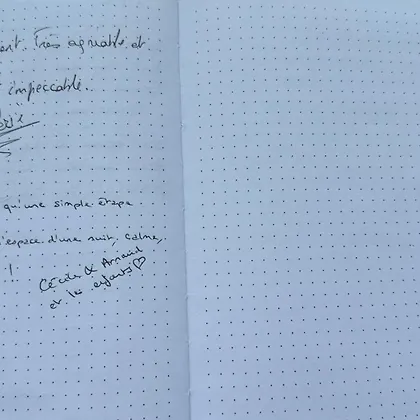 ent. Très agréable et
impeccable.
qu'une simple étape
l'espace d'une nuit, calme,
!
Cécile & Arnaud
et les enfants ♡